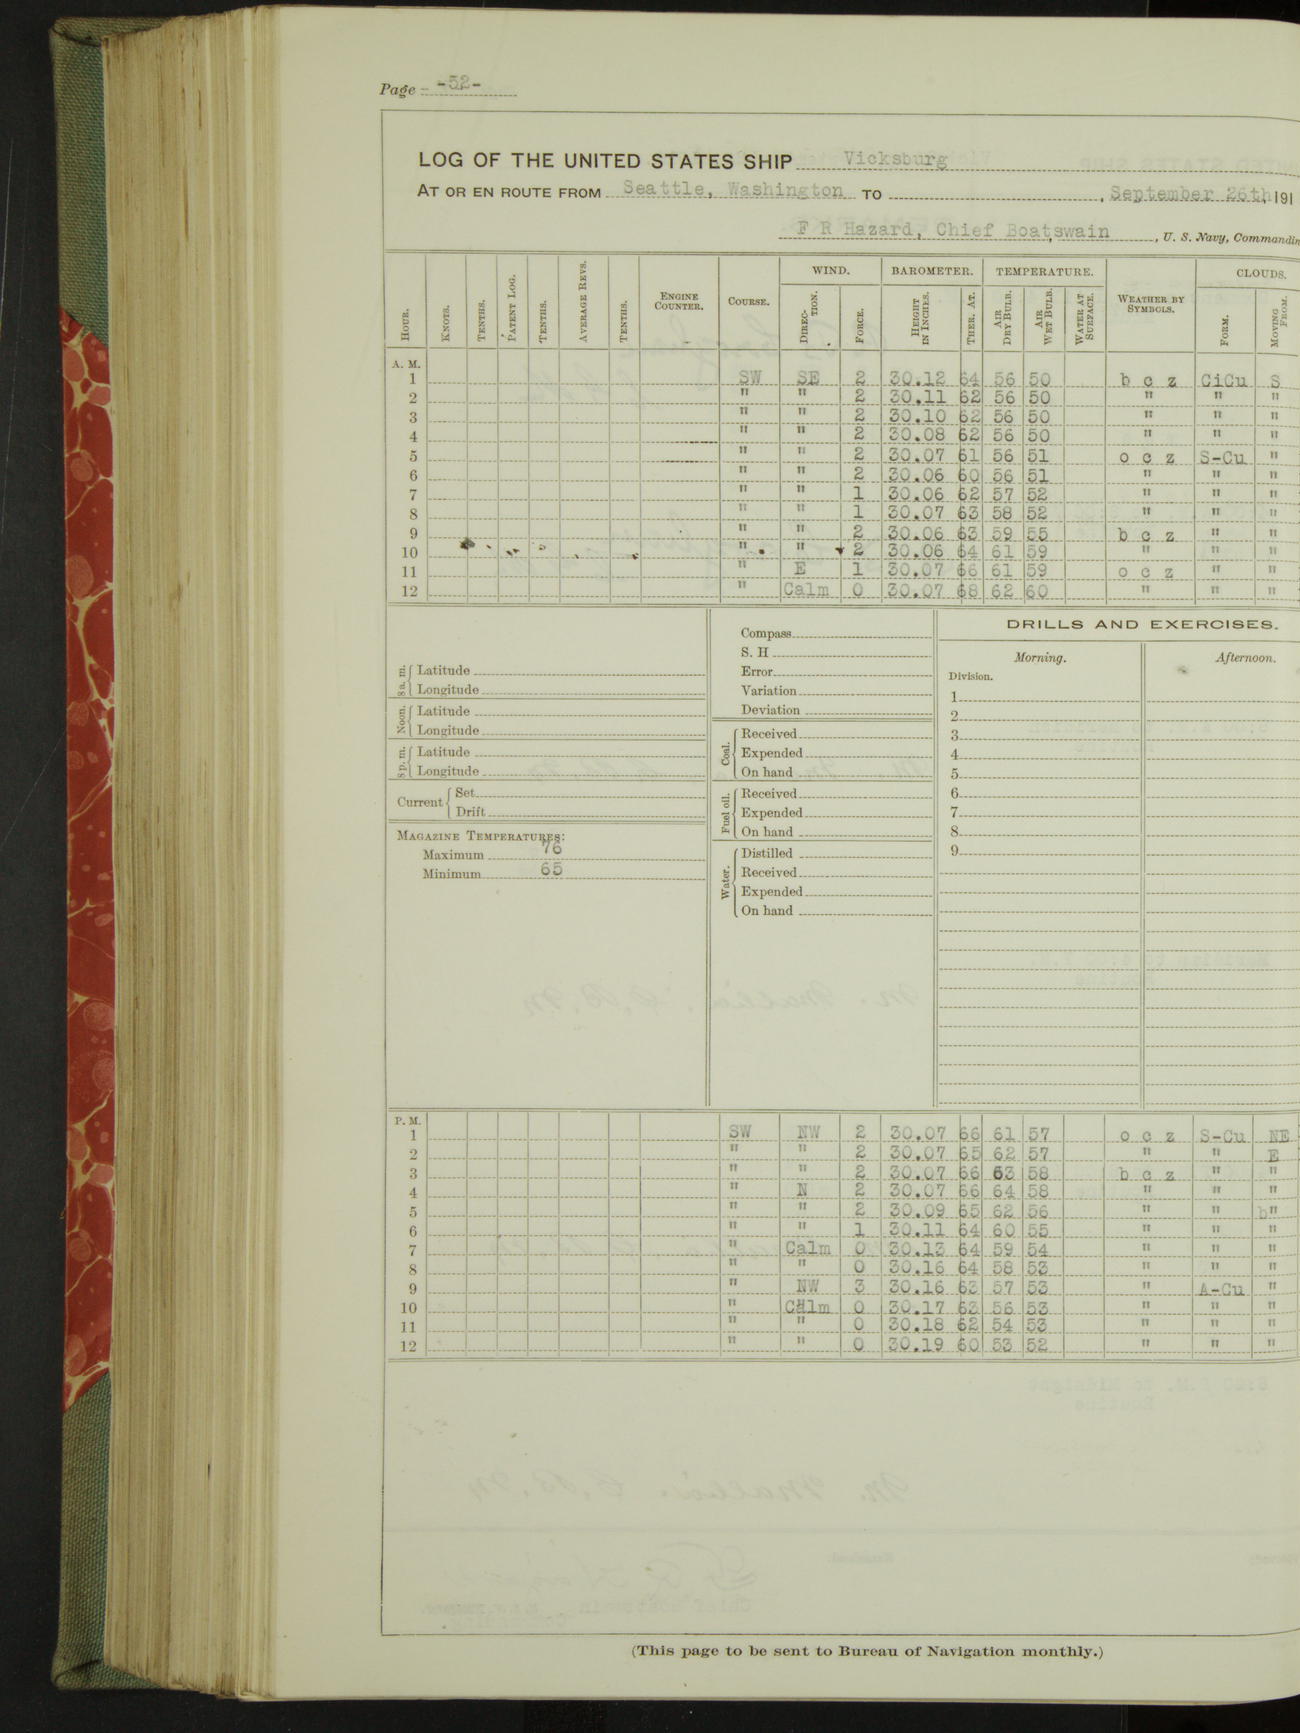 Page -52-
LOG OF THE UNITED STATES SHIP Vicksburg
AT OR EN ROUTE FROM Seattle, Washington TO , September 26th, 191
F R Hazard, Chief Boatswain , U. S. Navy, Commandin
HOUR. KNOTS. TENTHS. PATENT LOG. TENTHS. AVERAGE REVS. TENTHS. ENGINE COUNTER. COURSE. WIND. DIRECTION. FORCE. BAROMETER. HEIGHT IN INCHES. THER. AT. TEMPERATURE. AIR DRY BULB. AIR WET BULB. WATER AT SURFACE. WEATHER BY SYMBOLS. CLOUDS. FORM. MOVING FROM.
A. M.
1 SW SE 2 30.12 64 56 50 b c z CiCu S
2 " " 2 30.11 62 56 50 " " "
3 " " 2 30.10 62 56 50 " " "
4 " " 2 30.08 62 56 50 " " "
5 " " 2 30.07 61 56 51 o c z S-Cu "
6 " " 2 30.06 60 56 51 " " "
7 " " 1 30.06 62 57 52 " " "
8 " " 1 30.07 63 58 52 " " "
9 " " 2 30.06 63 59 55 b c z " "
10 " " 2 30.06 64 61 59 " " "
11 " E 1 30.07 66 61 59 o c z " "
12 " Calm 0 30.07 68 62 60 " " "
8 a. m. Latitude
Longitude
Noon. Latitude
Longitude
8 p. m. Latitude
Longitude
Current Set
Drift
MAGAZINE TEMPERATURES:
Maximum 76
Minimum 65
Compass
S. H
Error
Variation
Deviation
Coal. Received
Expended
On hand
Fuel oil. Received
Expended
On hand
Water. Distilled
Received
Expended
On hand
DRILLS AND EXERCISES.
Morning. Afternoon.
Division.
1
2
3
4
5
6
7
8
9
P. M.
1 SW NW 2 30.07 66 61 57 o c z S-Cu NE
2 " " 2 30.07 65 62 57 " " E
3 " " 2 30.07 66 63 58 b c z " "
4 " N 2 30.07 66 64 58 " " "
5 " " 2 30.09 65 62 56 " " "
6 " " 1 30.11 64 60 55 " " "
7 " Calm 0 30.13 64 59 54 " " "
8 " " 0 30.16 64 58 53 " " "
9 " NW 3 30.16 63 57 53 " A-Cu "
10 " Calm 0 30.17 63 56 53 " " "
11 " " 0 30.18 62 54 53 " " "
12 " " 0 30.19 60 53 52 " " "
(This page to be sent to Bureau of Navigation monthly.)